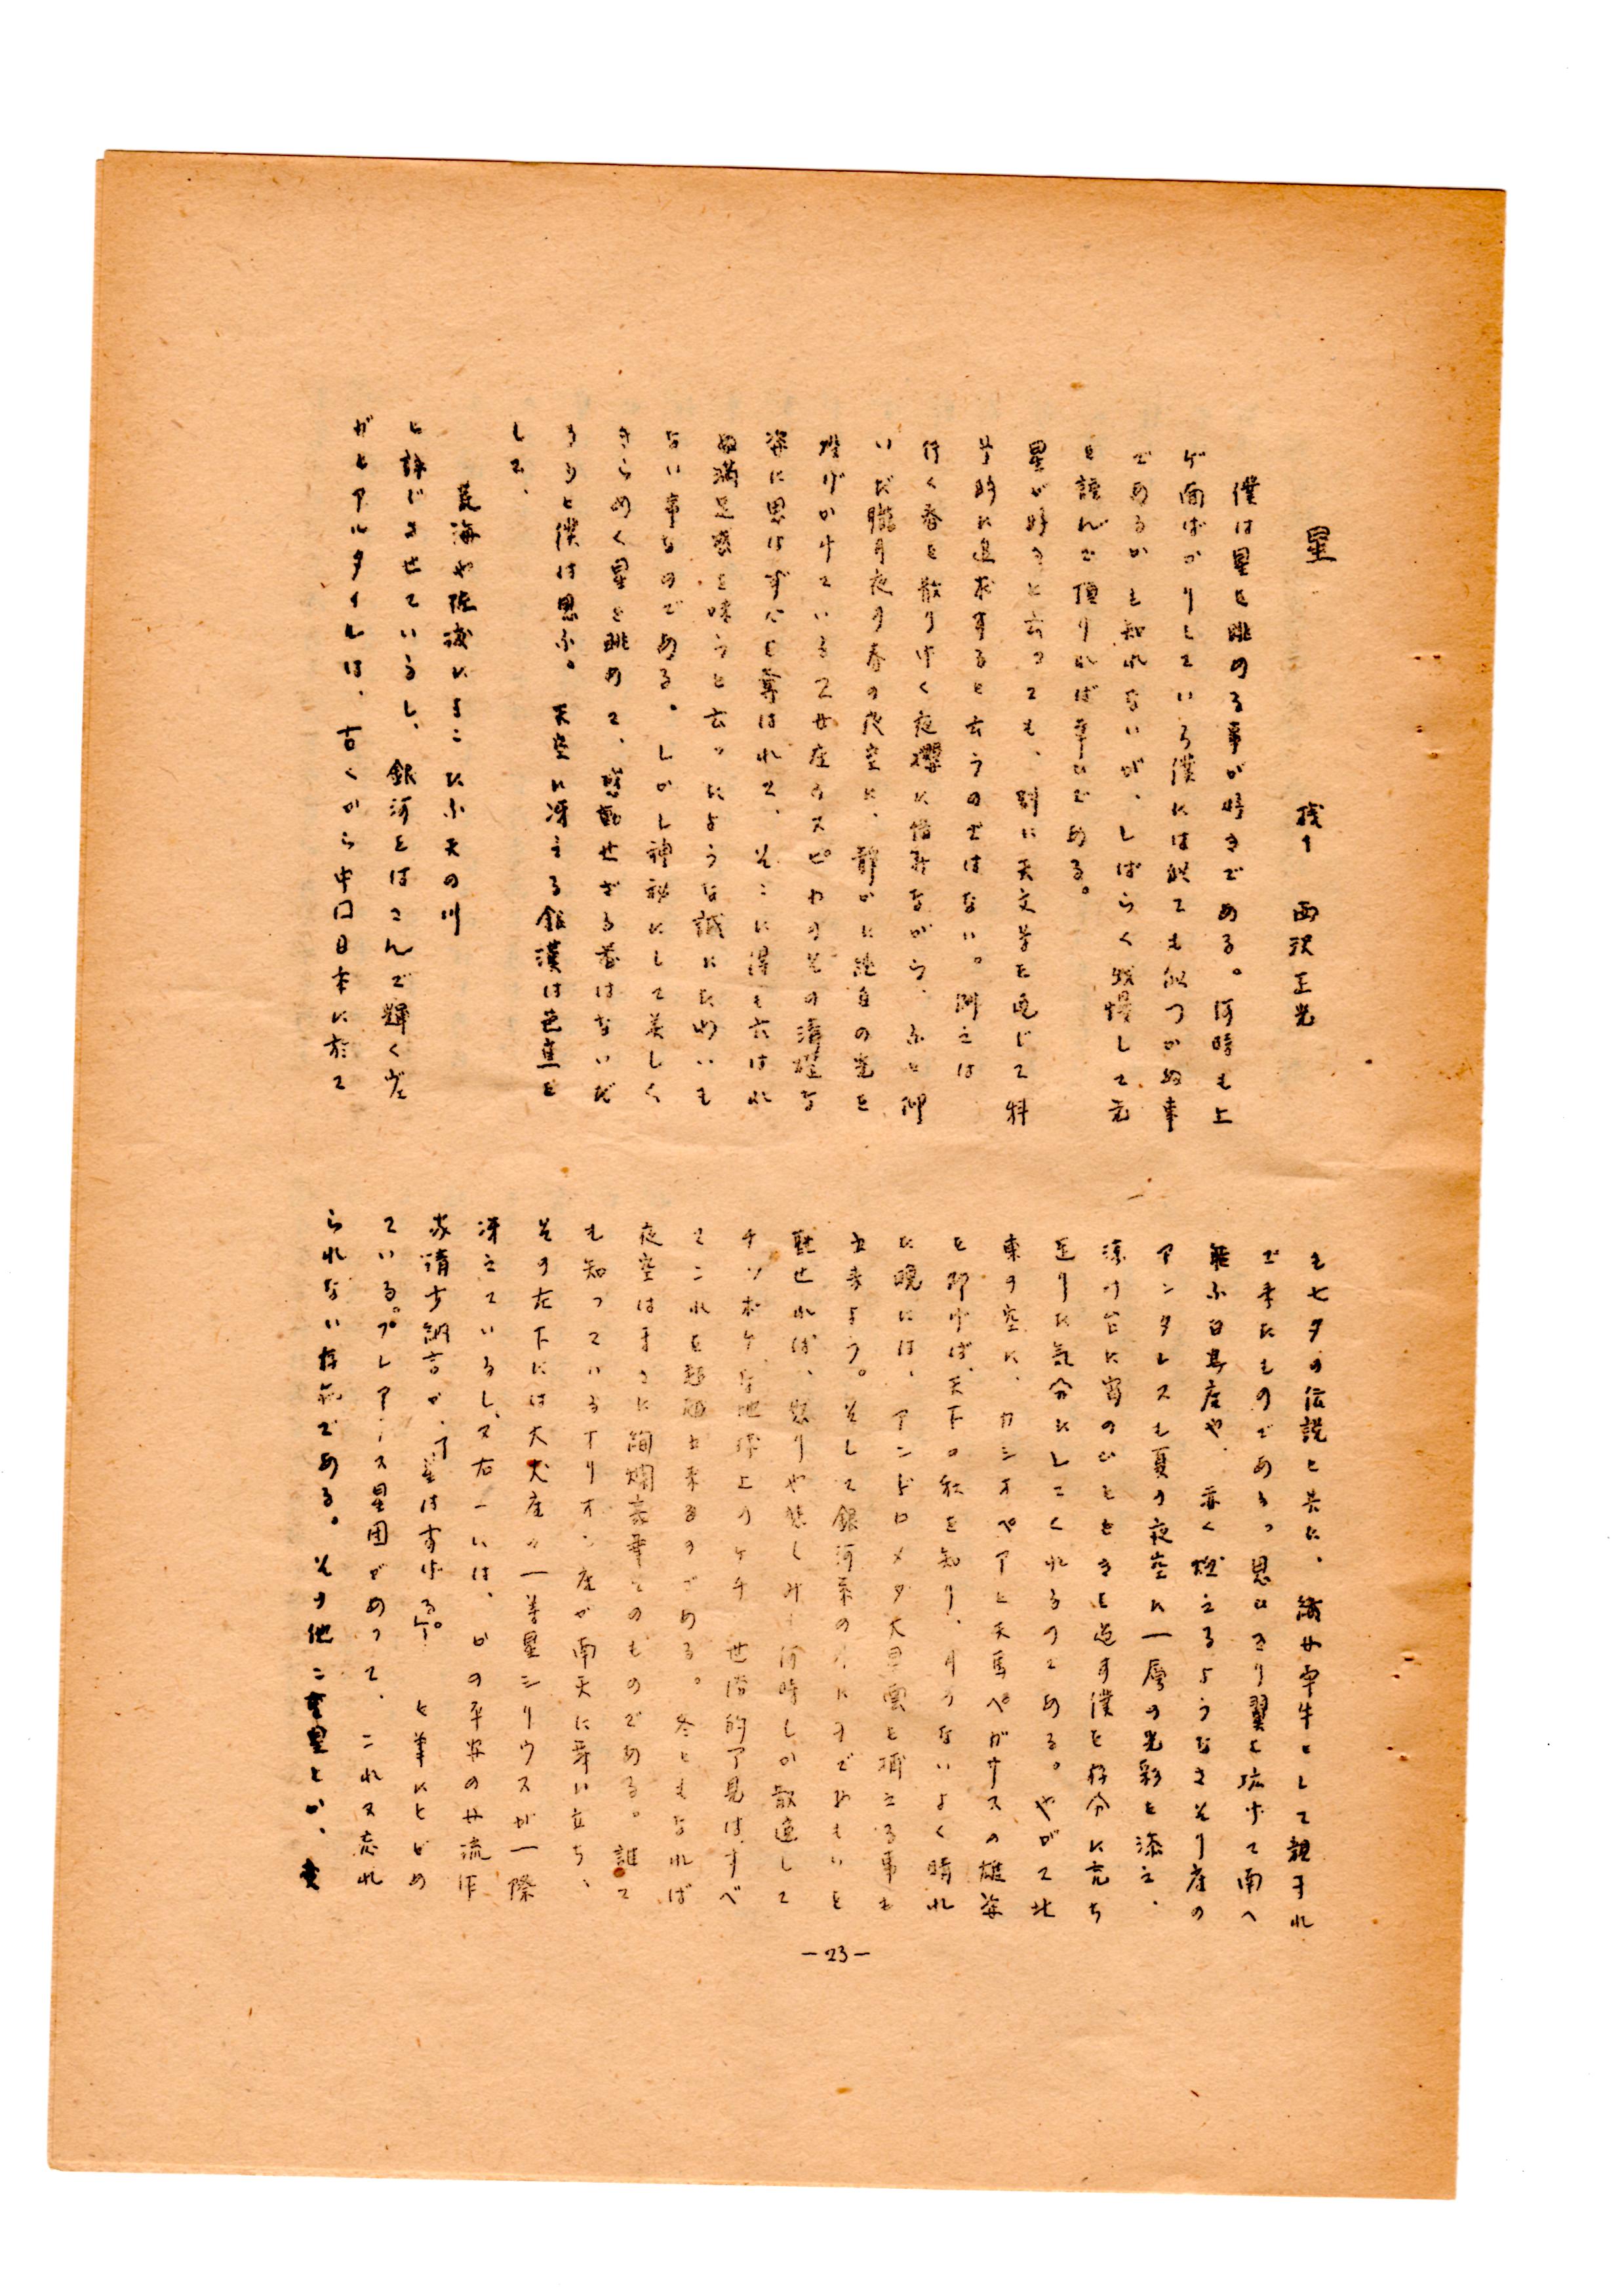 星
機1 西沢正光
僕は星を眺める事が好きである。何時も上
げ面ばかりしている僕には似ても似つかぬ事
であるかも知れないが、しばらく我慢して
を読んで頂ければ幸ひである。
星が好きと云っても、別に天文学を通じて科
学的に追求すると云うのではない。例えば
行く春を散りゆく夜櫻に惜みながら、ふと仰
いだ朧月夜の春の夜空に、静かに純白の光を
投げかけている乙女座のスピカのその清楚な
姿に思はず心を奪はれて、そこに得も云はれ
ぬ満足感を味うと云ったような誠にたわいも
ない事なのである。しかし神秘にして美しく
きらめく星を眺めて、感動せざる者はないだ
ろうと僕は思ふ。天空に冴える銀漢は芭蕉を
して、
荒海や佐渡によこたふ天の川
と詠じさせているし、銀河をはさんで輝くヴェ
ガとアルタイルは、古くから中国日本に於て
も七夕の伝説と共に、織女牽牛として親まれ
て来たものである。思ひきり翼を拡げて南へ
飛ぶ白鳥座や、赤く燃えるようなさそり座の
アンタレスも夏の夜空に一層の光彩を添え、
涼み台に宵のひとときを過す僕を存分に充ち
足りた気分にしてくれるのである。やがて北
東の空に、カシオペアと天馬ペガサスの雄姿
を仰げば、天下の秋を知り、月のないよく晴れ
た晩には、アンドロメダ大星雲を捕える事も
出来よう。そして銀河系の外にまでおもいを
馳せれば、怒りや悲しみも何時しか散逸して
チッポケな地球上のケチ 世俗的 見はすべ
てこれを超越出来るのである。冬ともなれば
夜空はまさに絢爛豪華そのものである。誰で
も知っているオリオン座が南天に舞い立ち、
その左下には大犬座の一等星シリウスが一際
冴えているし、又右 には、かの平安の女流作
家清少納言が、「星はすばる。」と筆にとどめ
ている。プレアデス星団があって、これ又忘れ
られない存在である。その他二重星とか、変
－23－